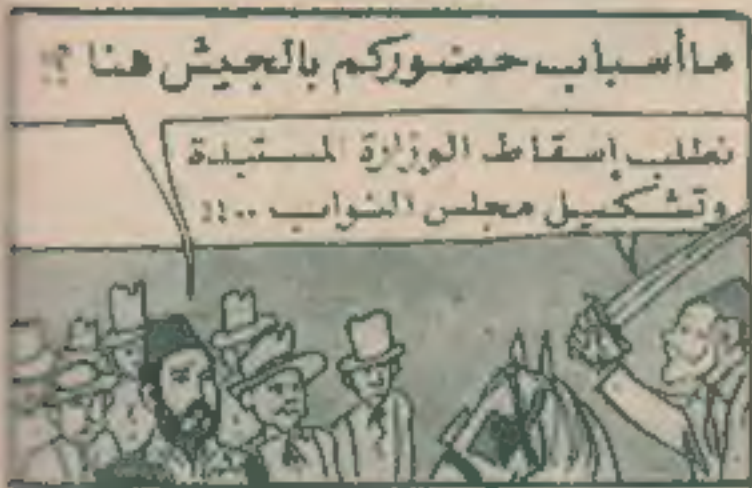 ما أسباب حضوركم بالجيش هنا ؟!
نطلب إسقاط الوزارة المستبدة
وتشكيل مجلس النواب ..!!